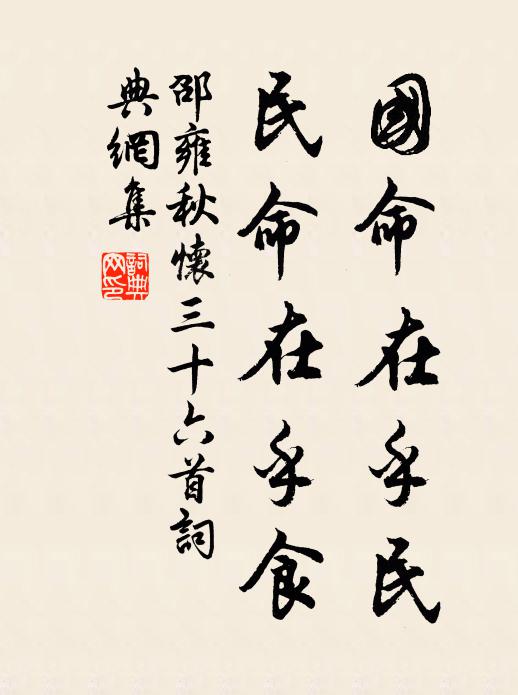 國命在乎民
民命在乎食
邵雍秋懷三十六首詞
典網集
詞典网印